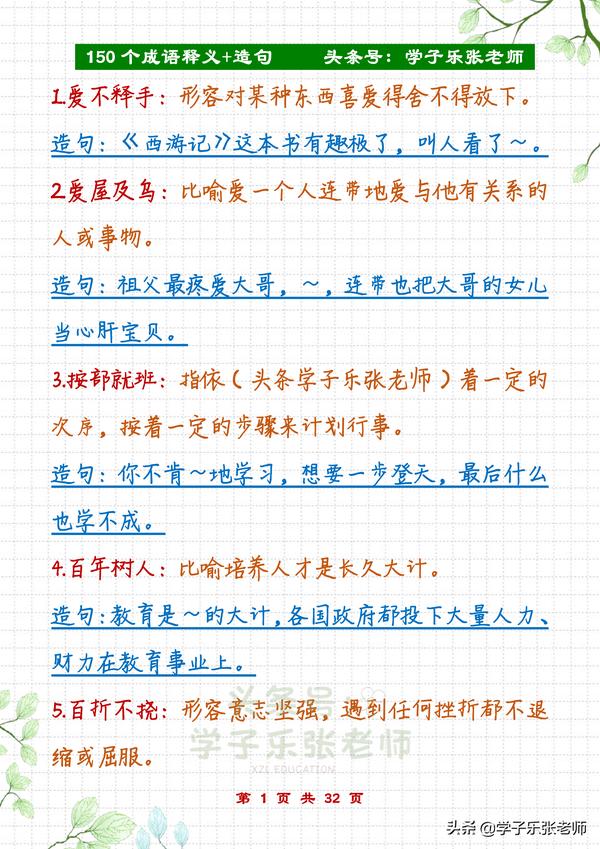 150个成语释义+造句 头条号：学子乐张老师
1.爱不释手：形容对某种东西喜爱得舍不得放下。
造句：《西游记》这本书有趣极了，叫人看了～。
2.爱屋及乌：比喻爱一个人连带地爱与他有关系的
人或事物。
造句：祖父最疼爱大哥，～，连带也把大哥的女儿
当心肝宝贝。
3.按部就班：指依（头条学子乐张老师）着一定的
次序，按着一定的步骤来计划行事。
造句：你不肯～地学习，想要一步登天，最后什么
也学不成。
4.百年树人：比喻培养人才是长久大计。
造句：教育是～的大计，各国政府都投下大量人力、
财力在教育事业上。
5.百折不挠：形容意志坚强，遇到任何挫折都不退
缩或屈服。
头条号
学子乐张老师
XZL EDUCATION
第 1 页 共 32 页
头条 @学子乐张老师